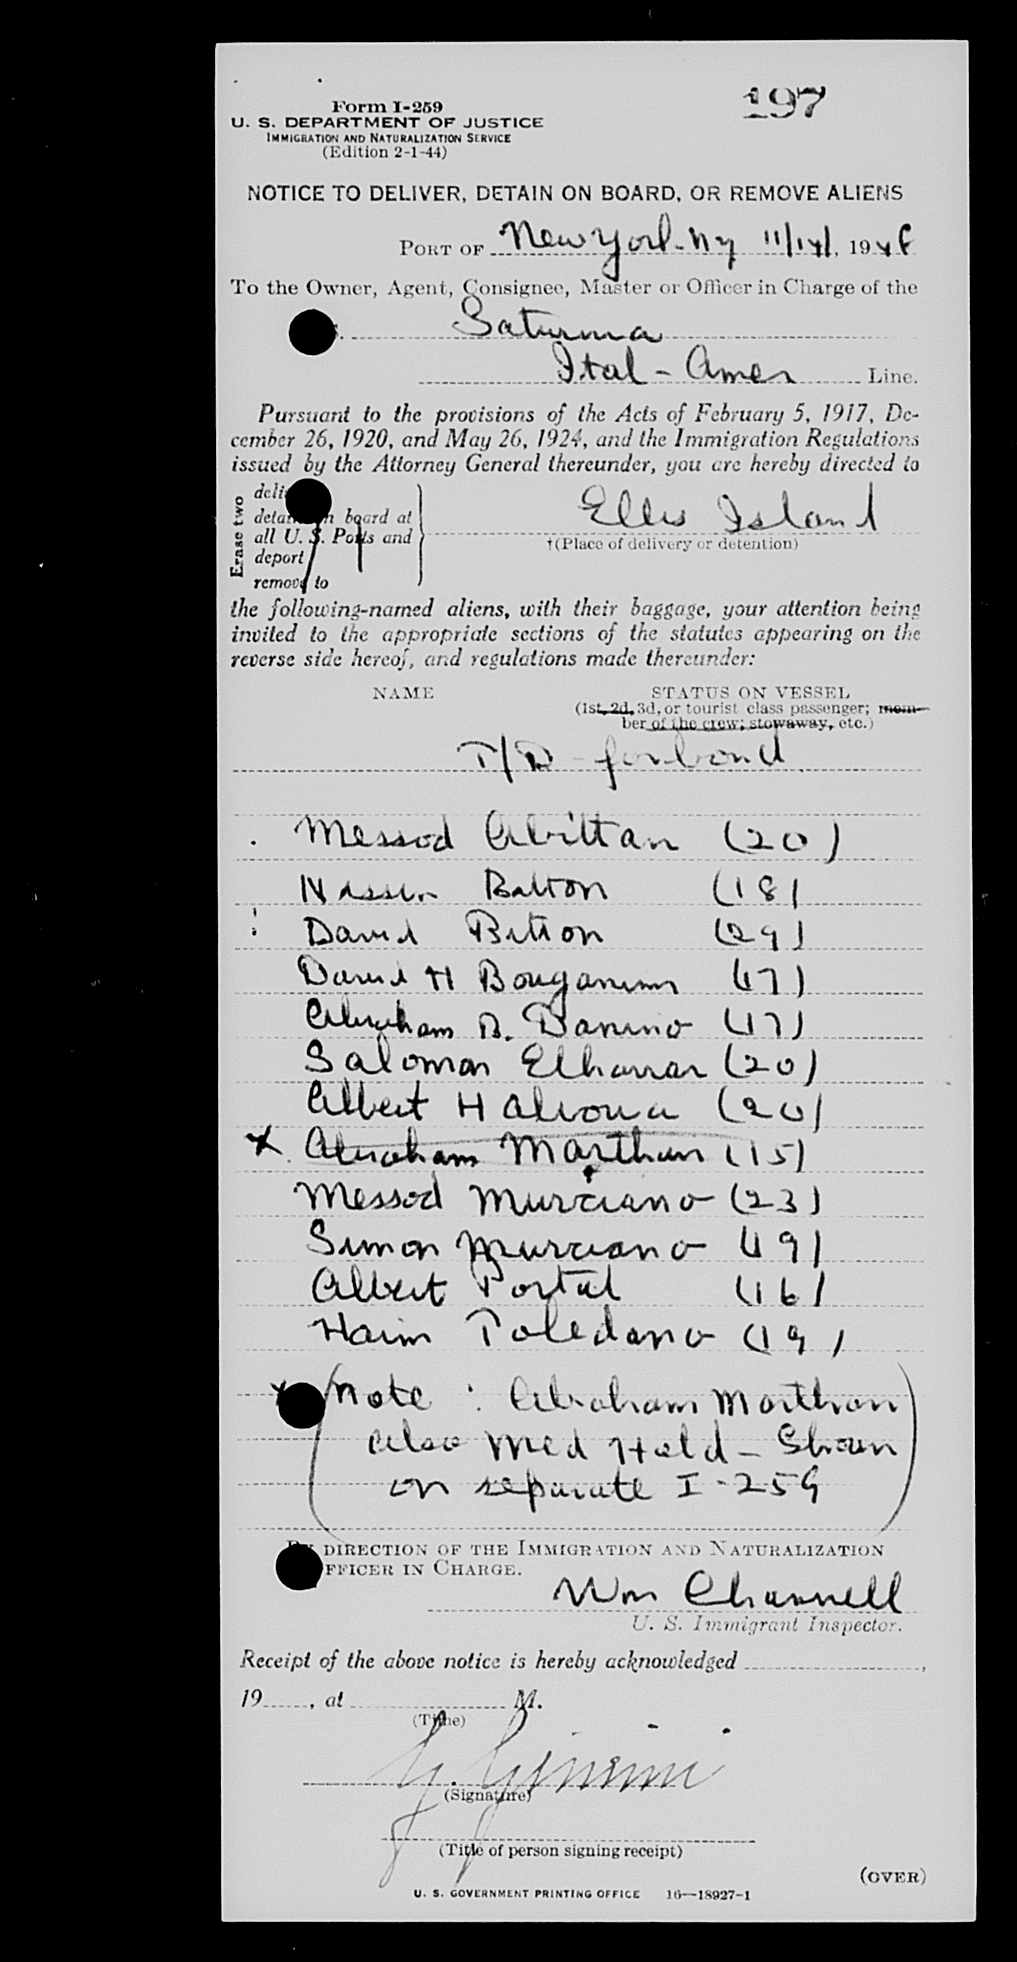 197
Form I-259
U. S. DEPARTMENT OF JUSTICE
IMMIGRATION AND NATURALIZATION SERVICE
(Edition 2-1-44)
NOTICE TO DELIVER, DETAIN ON BOARD, OR REMOVE ALIENS
PORT OF New York - NY 11/14/, 1946
To the Owner, Agent, Consignee, Master or Officer in Charge of the
Saturnia
Ital - Amer Line.
Pursuant to the provisions of the Acts of February 5, 1917, De-
cember 26, 1920, and May 26, 1924, and the Immigration Regulations
issued by the Attorney General thereunder, you are hereby directed to
Erase two
deli
detain on board at
all U. S. Ports and
deport
remove to
Ellis Island
†(Place of delivery or detention)
the following-named aliens, with their baggage, your attention being
invited to the appropriate sections of the statutes appearing on the
reverse side hereof, and regulations made thereunder:
NAME STATUS ON VESSEL
(1st, 2d, 3d, or tourist class passenger; mem-
ber of the crew; stowaway, etc.)
T/D - for bond
Messod Abittan (20)
Nissim Bitton (18)
David Bitton (29)
David H Bouganim (17)
Abraham B. Danino (17)
Salomon Elharrar (20)
Albert H (20)
X. Abraham Marthan (15)
Messod Murciano (23)
Simon Murciano (19)
Albert Portal (16)
Haim Toledano (19)
x (Note : Abraham Marthan
also Med Hold - Shown
on separate I-259)
BY DIRECTION OF THE IMMIGRATION AND NATURALIZATION
OFFICER IN CHARGE.
Wm Channell
U. S. Immigrant Inspector.
Receipt of the above notice is hereby acknowledged ,
19 , at M.
(Time)
G.
(Signature)
(Title of person signing receipt)
(OVER)
U. S. GOVERNMENT PRINTING OFFICE 16—18927-1